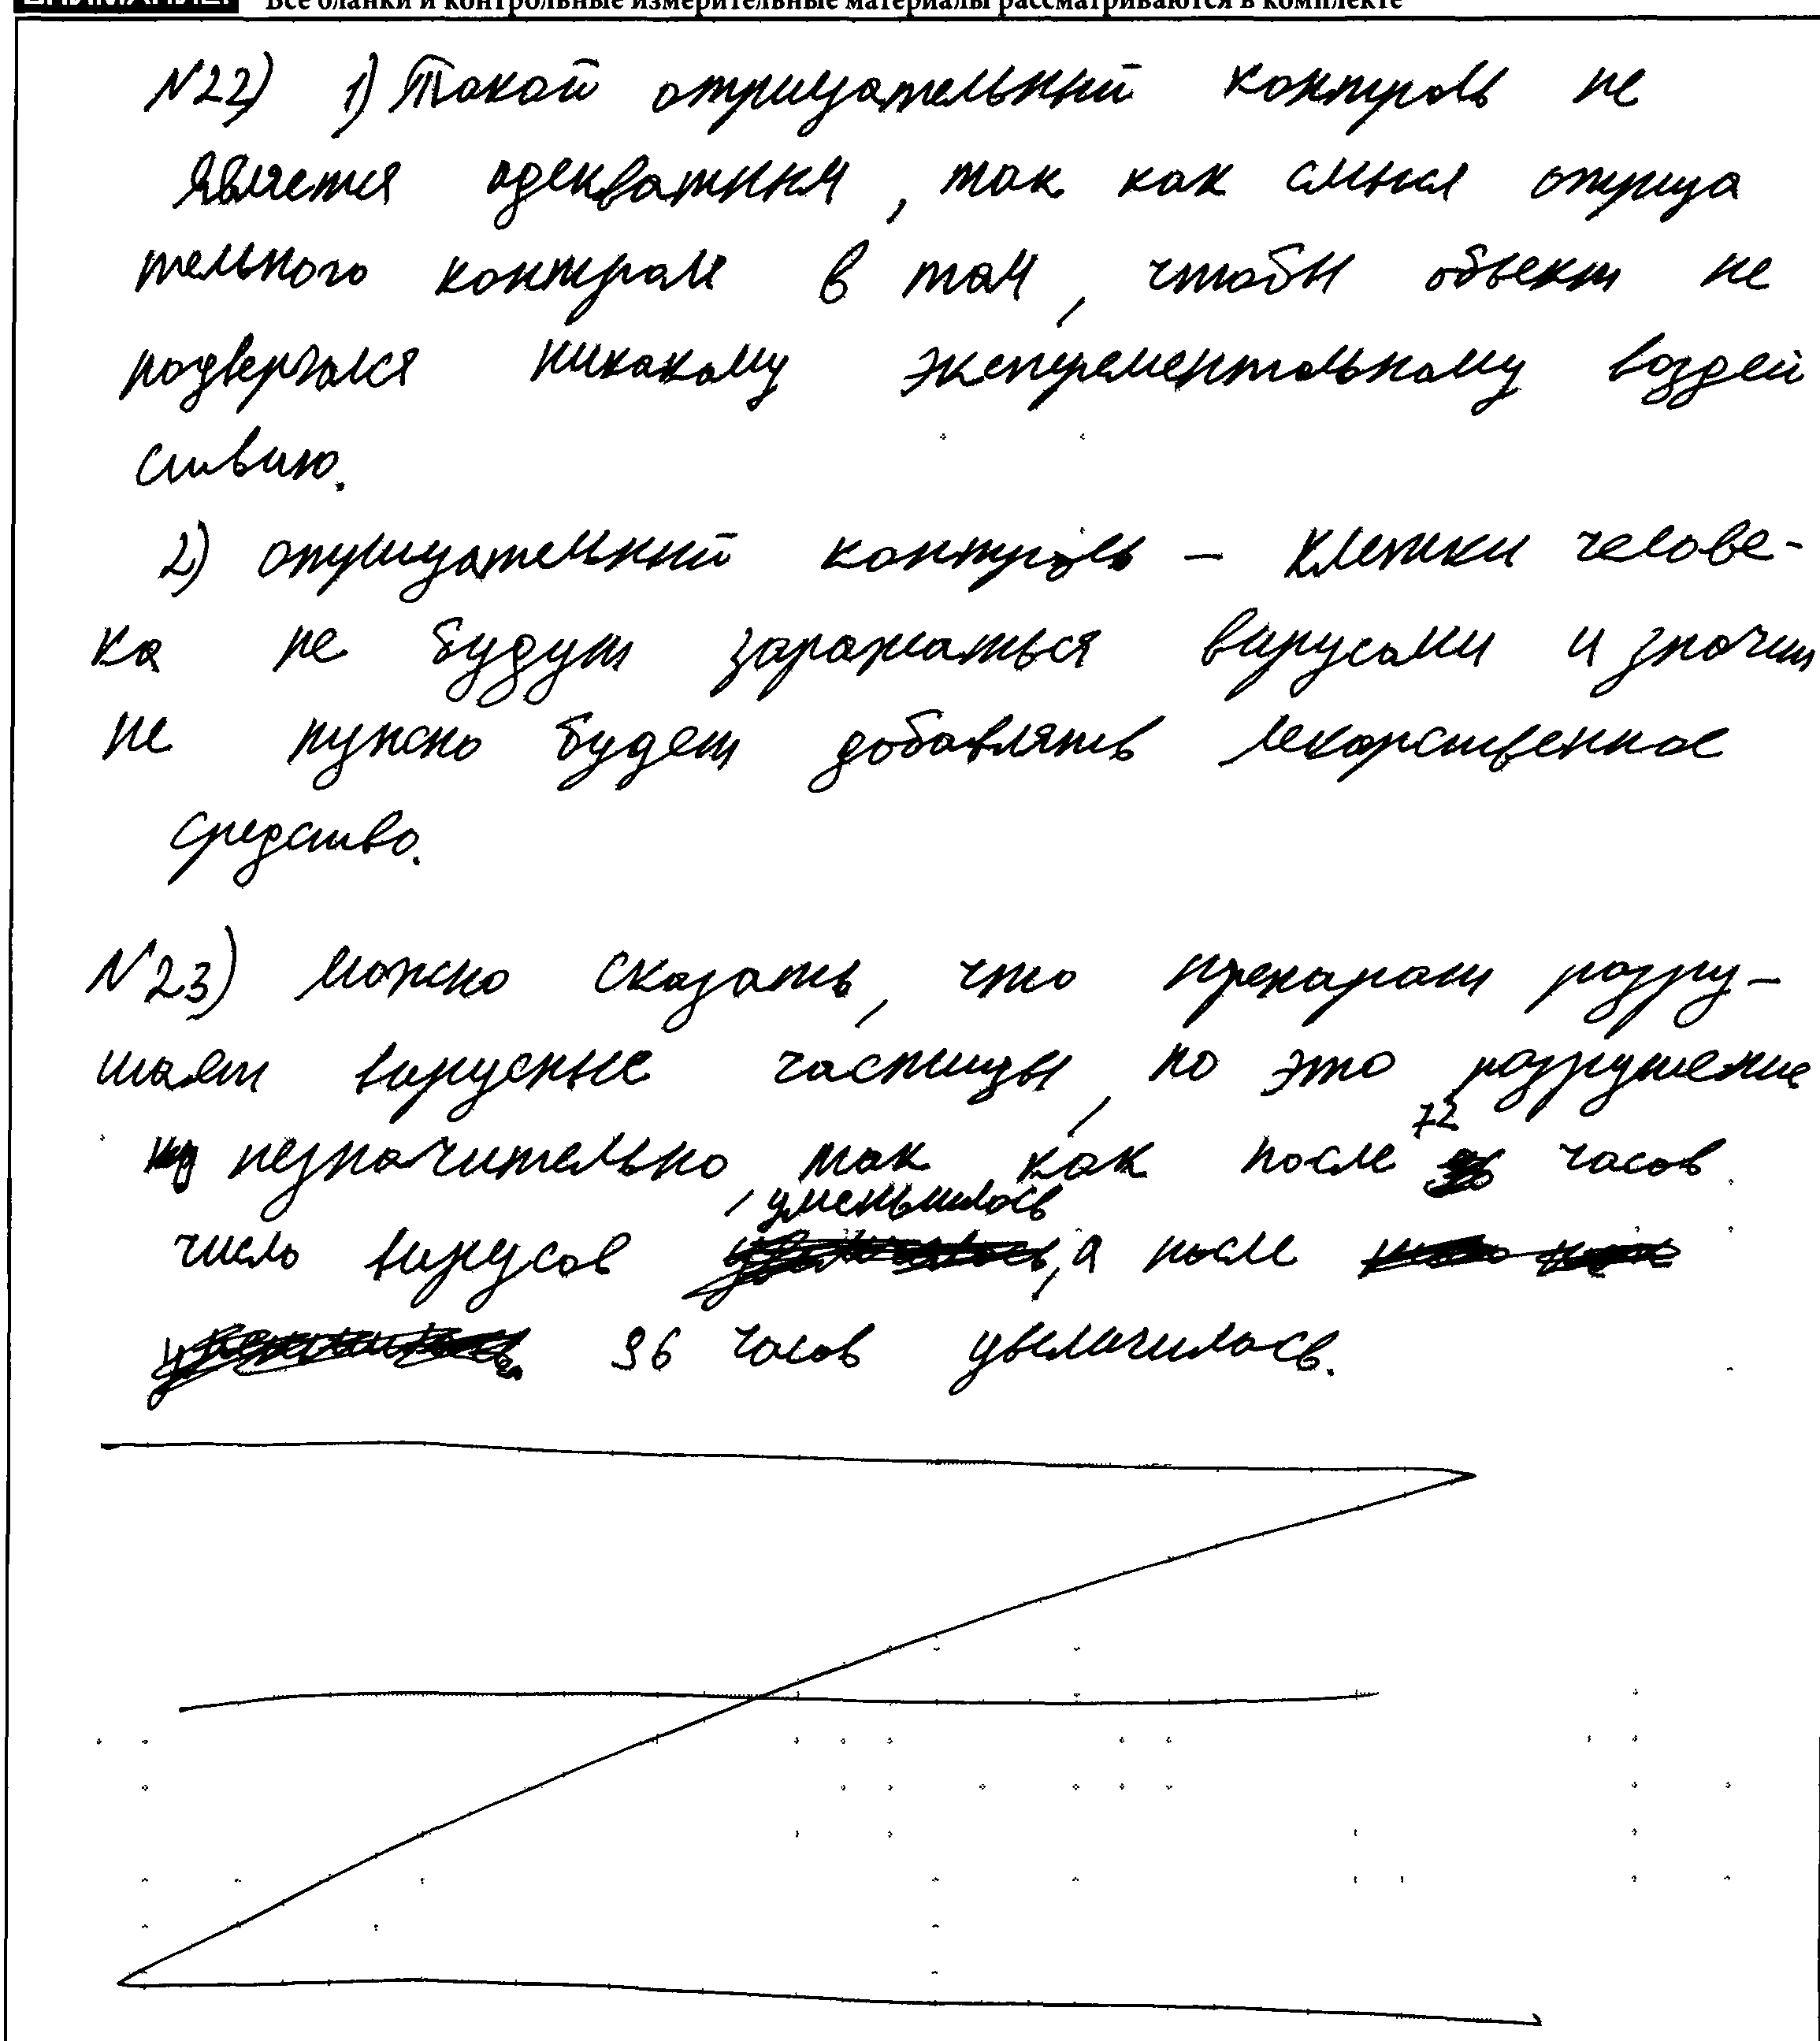 Все бланки и контрольные измерительные материалы рассматриваются в комплекте
№22) 1) Такой отрицательный контроль не
является адекватным, так как смысл отрица
тельного контроля в том, чтобы объект не
подвергался никакому эксперементальному воздей
ствию.
2) отрицательный контроль – клетки челове-
ка не будут заражаться вирусами и значит
не нужно будет добавлять лекарственное
средство.
№23) Можно сказать, что препарат разру-
шает вирусные частицы, но это разрушение
незначительно, так как после 72 часов
число вирусов уменьшилось, а после
96 часов увеличилось.